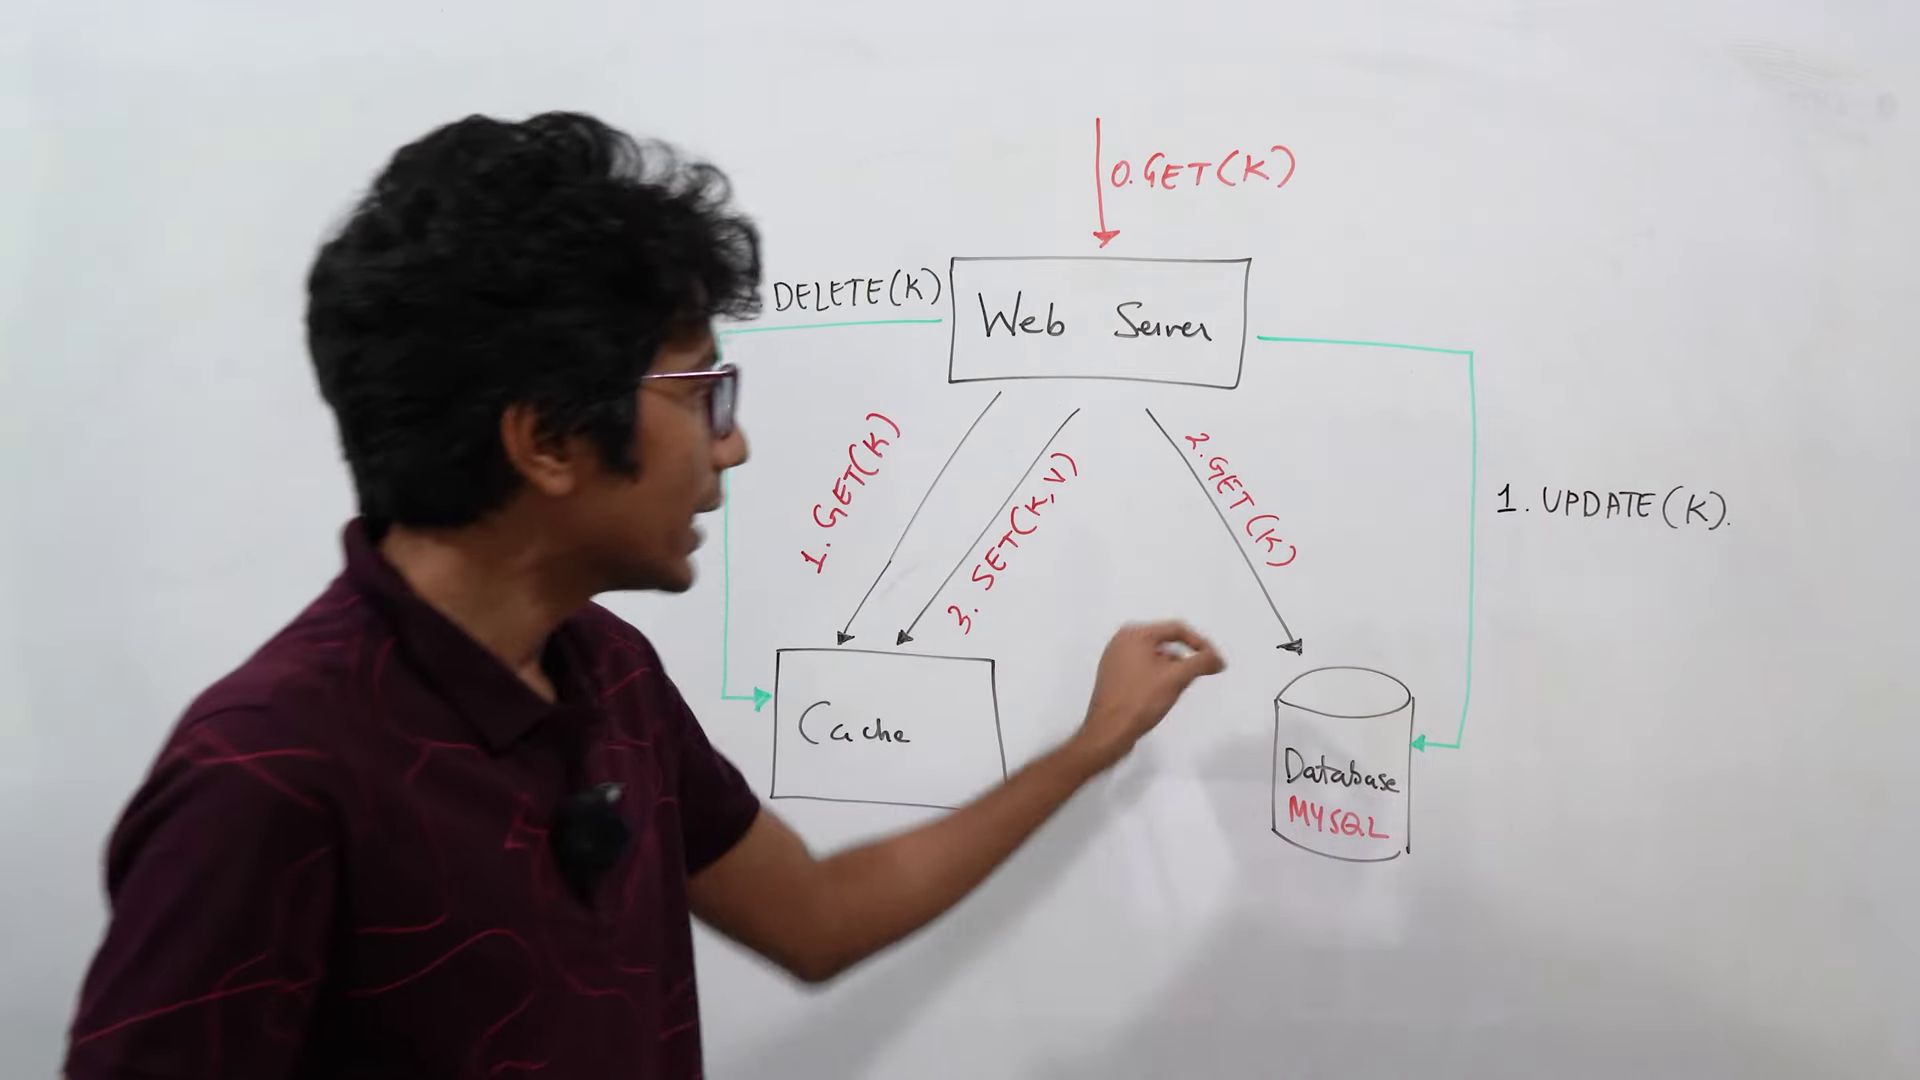 0. GET(K)
DELETE(K)
Web Server
1. GET(K)
3. SET(K,V)
2. GET(K)
1. UPDATE(K).
Cache
Database
MYSQL